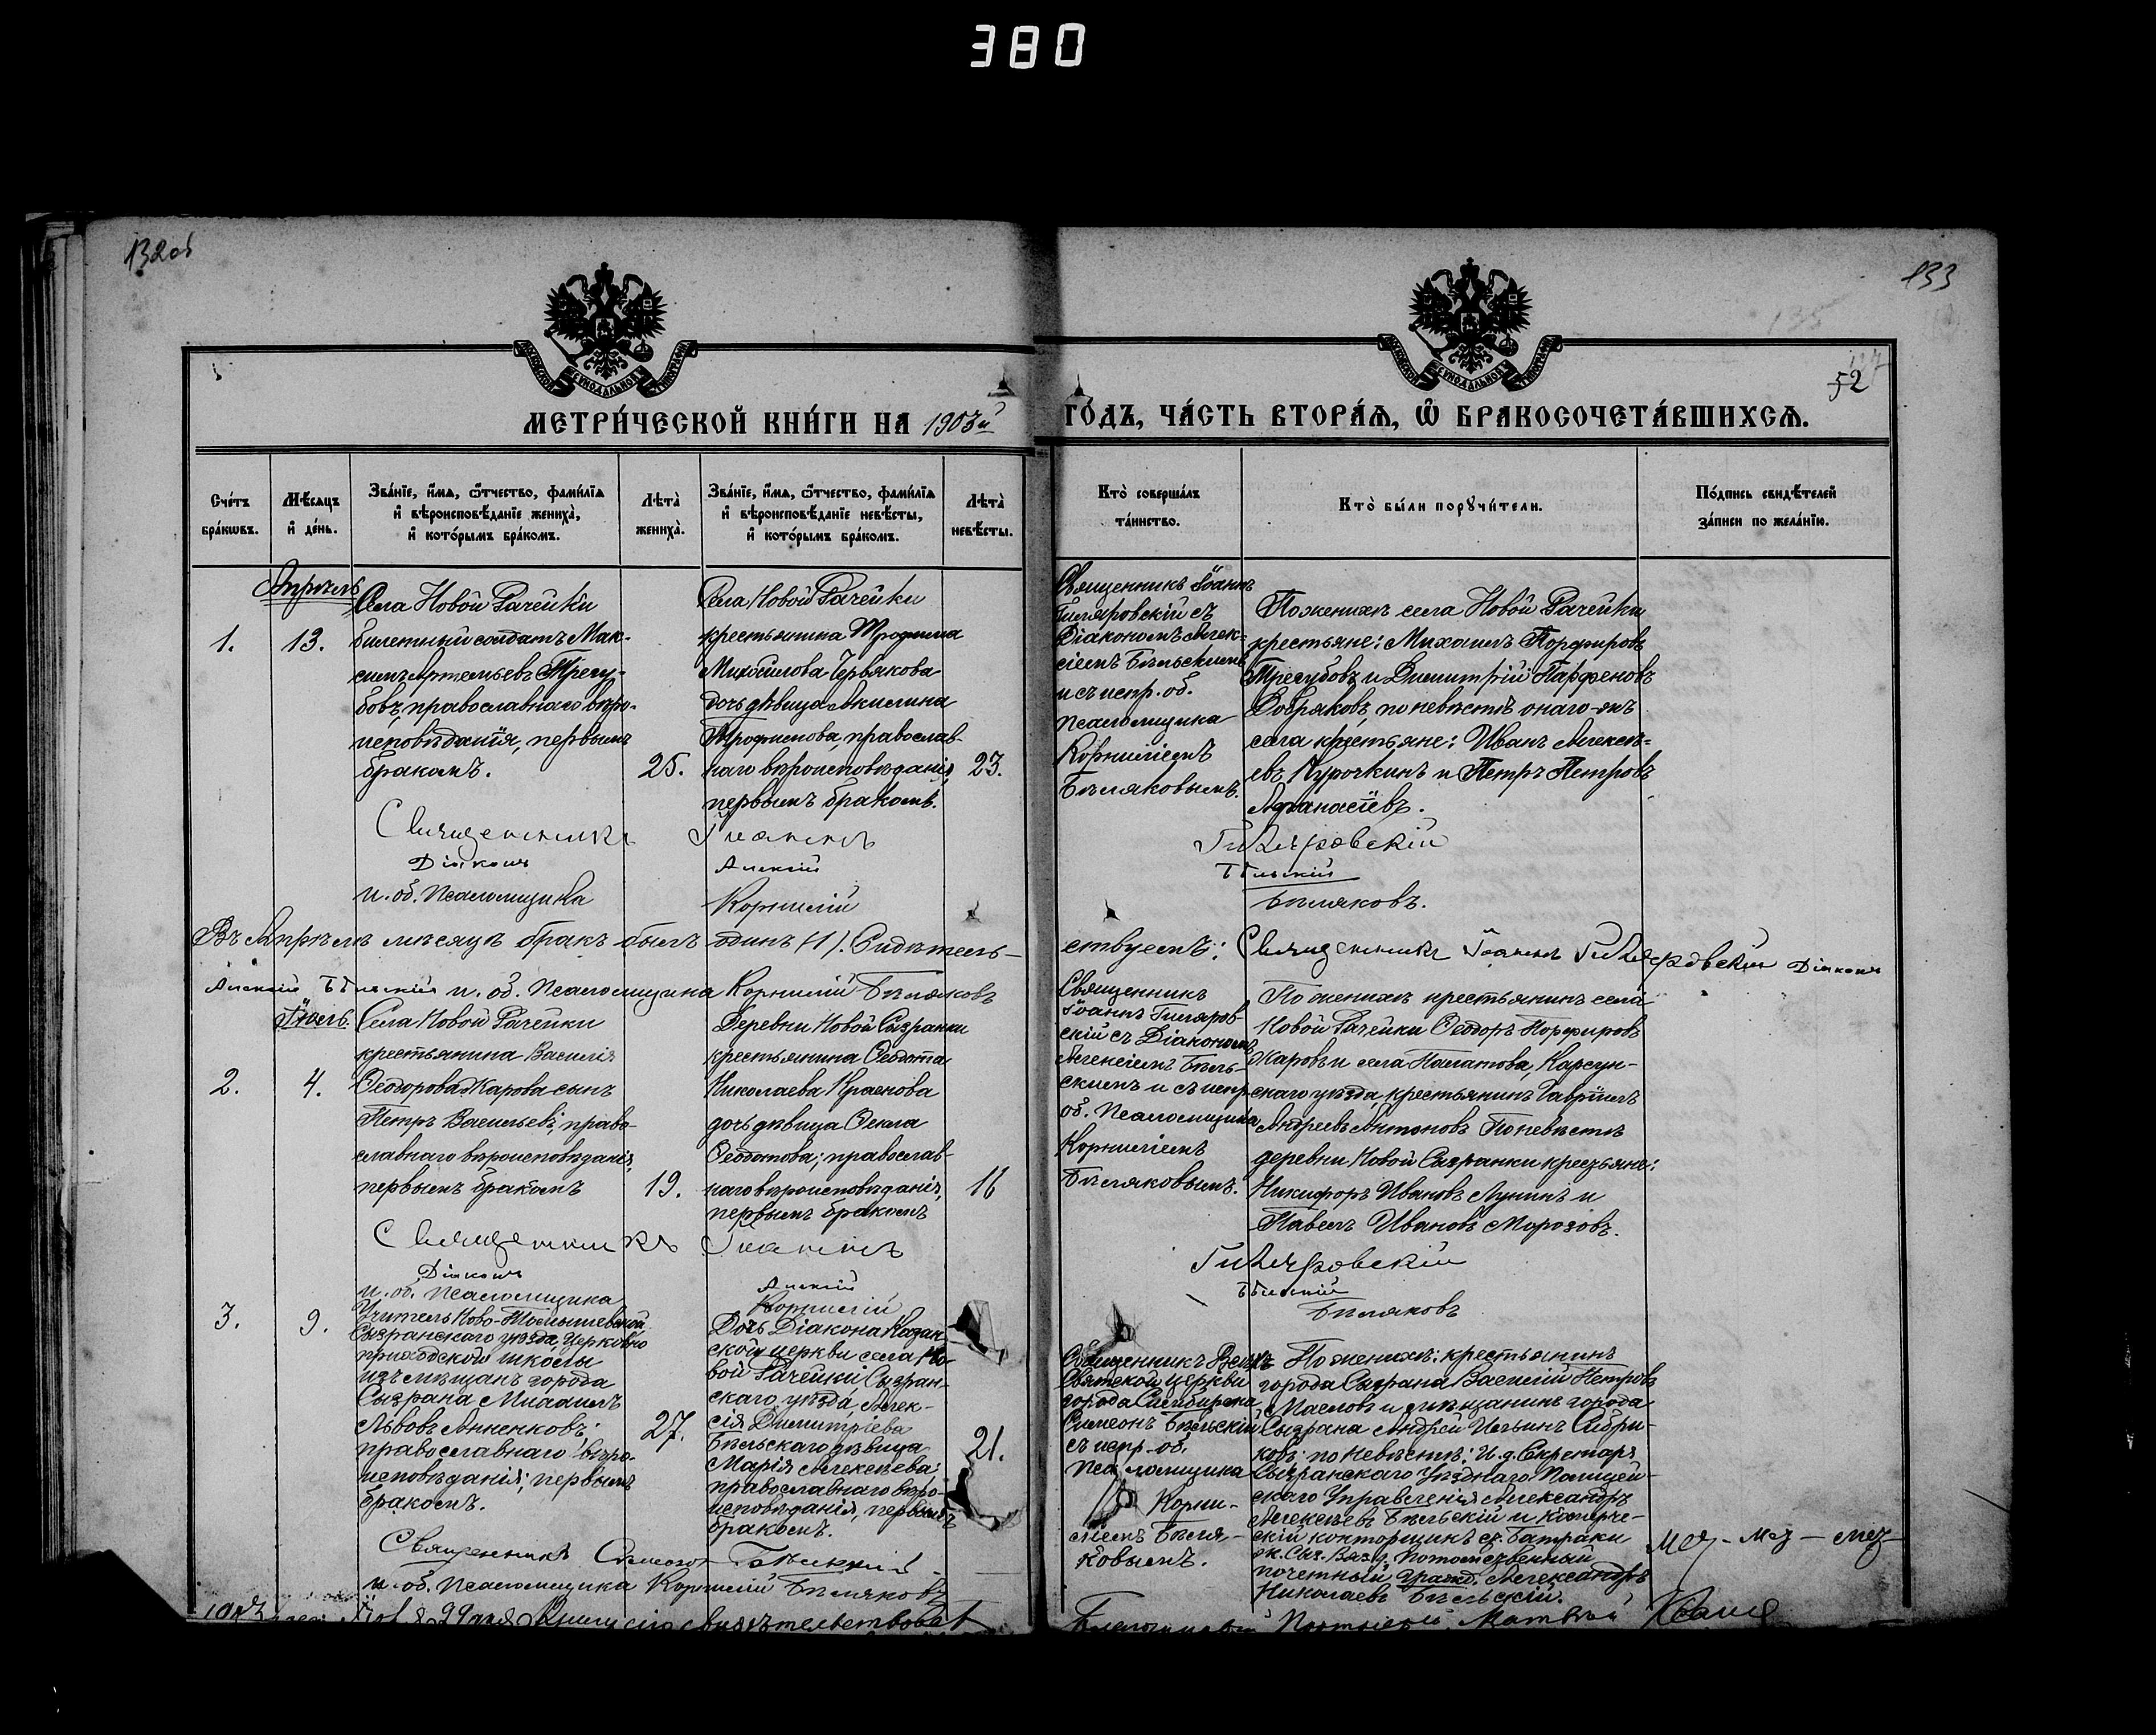 380
132об
133
135
52
МОСКОВСКОЙ СѴНОДАЛЬНОЙ ТИПОГРАФІИ
МОСКОВСКОЙ СѴНОДАЛЬНОЙ ТИПОГРАФІИ
МЕТРИ́ЧЕСКОЙ КНИ́ГИ НА 1903й ГО́ДЪ, ЧА́СТЬ ВТОРА́Ѧ, Ѡ҆ БРАКОСОЧЕТА́ВШИХСѦ.
Сче́тъ бра́кѡвъ.
Мѣ́сяцъ и҆ де́нь.
Зва́нїе, и҆́мѧ, ѻ҆́тчество, фами́лїѧ и҆ вѣроисповѣ́данїе жениха̀, и҆ кото́рымъ бра́комъ.
Лѣта̀ жениха̀.
Зва́нїе, и҆́мѧ, ѻ҆́тчество, фами́лїѧ и҆ вѣроисповѣ́данїе невѣ́сты, и҆ кото́рымъ бра́комъ.
Лѣта̀ невѣ́сты.
Кто̀ соверша́лъ та́инство.
Кто̀ бы́ли порꙋчи́тели.
По́дпись свидѣ́телей за́писи по жела́нїю.
Апрѣль
1.
13.
Села Новой Рачейки
билетный солдатъ Мак-
симъ Артемьевъ Трегу-
бовъ, православнаго вѣро-
исповѣданія, первымъ
бракомъ.
25.
Села Новой Рачейки
крестьянина Трофима
Михайлова Червякова
дочь дѣвица Акилина
Трофимова, православ-
наго вѣроисповѣданія,
первымъ бракомъ.
23.
Священникъ Іоаннъ
Гиляровскій съ
Діакономъ Алек-
сіемъ Бѣльскимъ
и съ испр. об.
псаломщика
Корниліемъ
Бѣляковымъ.
По женихѣ села Новой Рачейки
крестьяне: Михаилъ Порфировъ
Трегубовъ и Димитрій Парфеновъ
Добряковъ, по невѣстѣ онаго-жъ
села крестьяне: Иванъ Алексѣ-
евъ Курочкинъ и Петръ Петровъ
Афанасіевъ.
Священникъ Іоаннъ Гиляровскій
Діаконъ Алексій Бѣльскій
и. об. Псаломщика Корнилій Бѣляковъ.
Въ Апрѣлѣ мѣсяцѣ бракъ былъ одинъ (1). Сидѣтель-
ствуемъ: Священникъ Іоаннъ Гиляровскій Діаконъ
Алексій Бѣльскій и. об. Псаломщика Корнилій Бѣляковъ
Іюль.
2.
4.
Села Новой Рачейки
крестьянина Василія
Ѳеодорова Жарова сынъ
Петръ Васильевъ, право-
славнаго вѣроисповѣданія,
первымъ бракомъ
19.
Деревни Новой Сызранки
крестьянина Ѳеодота
Николаева Краснова
дочь дѣвица Ѳекла
Ѳеодотова; православ-
наго вѣроисповѣданія,
первымъ бракомъ
16
Священникъ
Іоаннъ Гиляров-
скій съ Діакономъ
Алексіемъ Бѣль-
скимъ и съ испр.
об. Псаломщика
Корниліемъ
Бѣляковымъ.
По женихѣ крестьянинъ села
Новой Рачейки Ѳеодоръ Порфировъ
Жаровъ и села Палатова, Карсун-
скаго уѣзда, крестьянинъ Гавріилъ
Андреевъ Антоновъ По невѣстѣ
деревни Новой Сызранки крестьяне:
Никифоръ Ивановъ Лунинъ и
Павелъ Ивановъ Морозовъ.
Священникъ Іоаннъ Гиляровскій
Діаконъ Алексій Бѣльскій
и. об. псаломщика Корнилій Бѣляковъ
3.
9.
Учитель Ново-Томышевской
Сызранскаго уѣзда, Церковно
приходской школы
изъ мѣщанъ города
Сызрана Михаилъ
Львовъ Анненковъ;
православнаго вѣро-
исповѣданія; первымъ
бракомъ.
27.
Дочь Діакона Казан-
ской церкви села Но-
вой Рачейки, Сызран-
скаго уѣзда, Алек-
сія Димитріева
Бѣльскаго дѣвица
Марія Алексѣева;
православнаго вѣро-
исповѣданія, первымъ
бракомъ.
21.
Священникъ Всѣхъ
Святской церкви
города Симбирска
Симеонъ Бѣльскій
съ испр. об.
псаломщика
Корни-
ліемъ Бѣля-
ковымъ.
По женихѣ: крестьянинъ
города Сызрана Василій Петровъ
Маслов и мѣщанинъ города
Сызрана Андрей Ильинъ Сибри-
ковъ; по невѣстѣ: И. д. Секретаря
Сызранскаго Уѣзднаго Полицей-
скаго Управленія Александръ
Алексѣевъ Бѣльскій и коммерче-
скій конторщикъ ст. Батраки
ж. Сыз. Вяз. д. Потомственный
почетный гражд. Александръ
Николаевъ Бѣльскій.
Священникъ Симеонъ Бѣльскій
и. об. псаломщика Корнилій Бѣляковъ
Книгу сію свидѣтельствовалъ
Благочинный Матвѣй